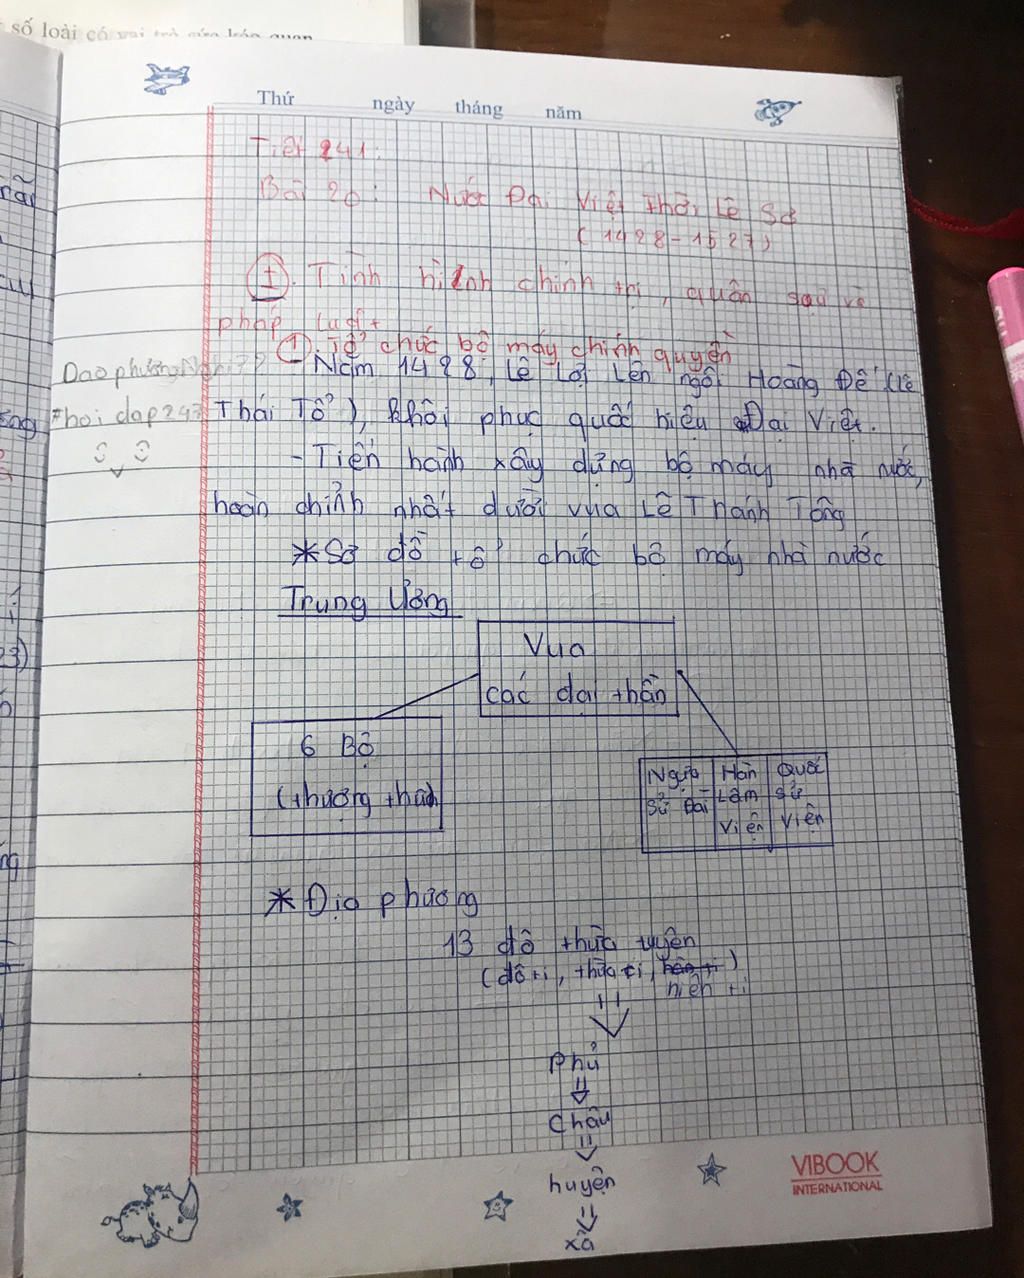 số loài có vai trò
Thứ ngày tháng năm
Tiết 241:
Bài 20: Nước Đại Việt thời Lê Sơ
(1428-1527)
I. Tình hình chính trị, quân sự, về
pháp luật
1. Tổ chức bộ máy chính quyền
- Năm 1428, Lê Lợi lên ngôi Hoàng Đế (Lê
Thái Tổ), khôi phục quốc hiệu Đại Việt.
Dao phương
hoi dap 247
- Tiến hành xây dựng bộ máy nhà nước,
hoàn chỉnh nhất dưới vua Lê Thánh Tông
* Sơ đồ tổ chức bộ máy nhà nước
Trung Ương
Vua
các đại thần
6 Bộ
(thượng thư)
Ngự Hàn Quốc
Sử Đài Lâm sử
Viện viện
* Địa phương
13 đô thừa tuyên
(đô ti, thừa ti, hiến ti)
Phủ
Châu
huyện
xã
VIBOOK
INTERNATIONAL